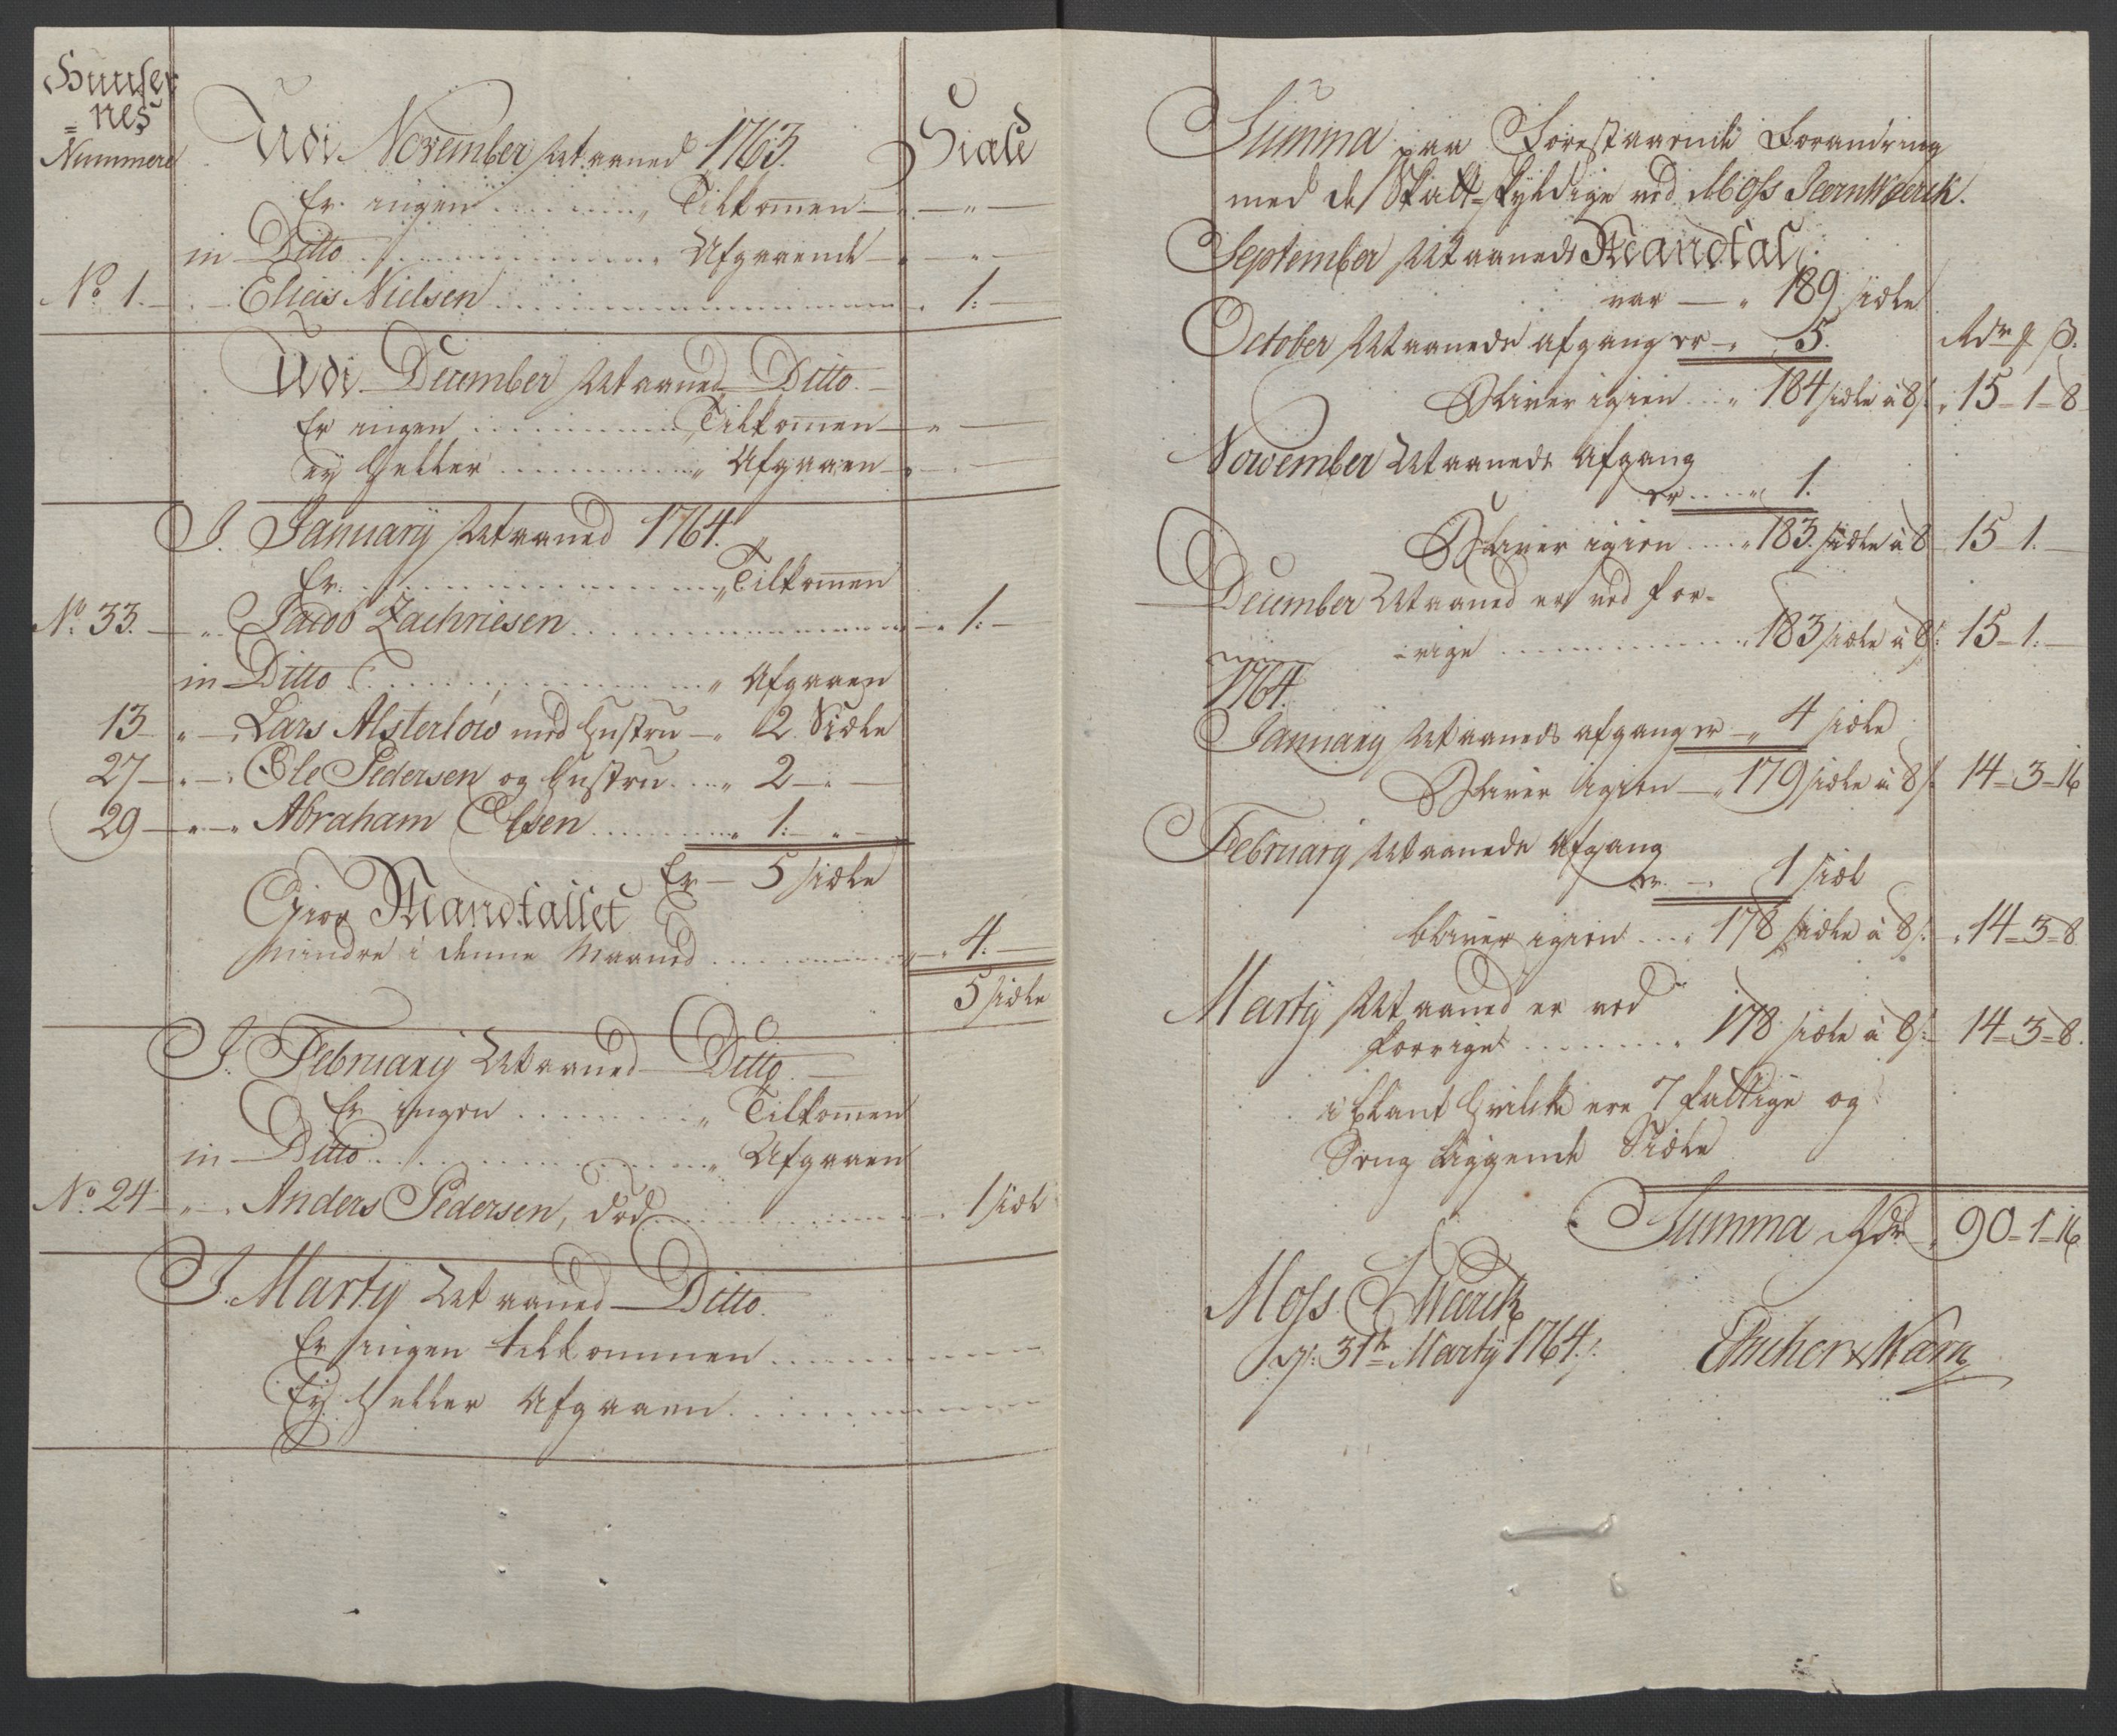 Huuser
nes
= Nummere
Udi November Maaned 1763. Siæle
Er ingen Tilkom̄en
in Ditto Afgaaende
No 1. Elias Nielsen 1:
Udi December Maaned Ditto.
Er ingen Tilkom̄en
ey heller Afgaaen
J. January Maaned 1764.
Er Tilkom̄en
No 33. Jacob Zachriesen 1:
in Ditto Afgaaen
13 Lars Alsterlow med hustru 2 Siæle
27 Ole Pedersen og hustru 2
29 Abraham Olsen 1:
Er 5 siæle
Giør Mandtallet
mindre i denne Maaned 4.
5 siæle
J. February Maaned Ditto.
Er ingen Tilkom̄en
in Ditto Afgaaen
No 24 Anders Pedersen, död 1 siæl
J. Marty Maaned Ditto.
Er ingen tilkommen
Ey heller Afgaaen
Summa paa Forestaaende Forandring
med de Skatt=skyldige ved Moss Jeernwærck.
September Maaneds Mandtal
var 189 siæle
October Maaneds afgang er 5. Rdr ȼ β.
Bliver igien 184 siæle à 8 s. 15-1-8
November Maaneds Afgang
er 1.
Bliver igien 183. siæle à 8 15-1.
December Maaned er ved for-
rige 183 siæle à 8 s: 15-1:
1764.
January Maaneds afgang er 4 siæle
Bliver igien 179 siæle à 8 s. 14=3=16
February Maaneds Afgang
er 1 siæl
bliver igien 178 siæle à 8 s: 14=3=8
Marty Maaned er ved
forrige 178 siæle à 8 s: 14=3=8.
i blant hvilcke ere 7 fattige og
Seng liggende Siæle
Summa Rdr 90=1=16
Moss Werck
d: 31te Marty 1764.